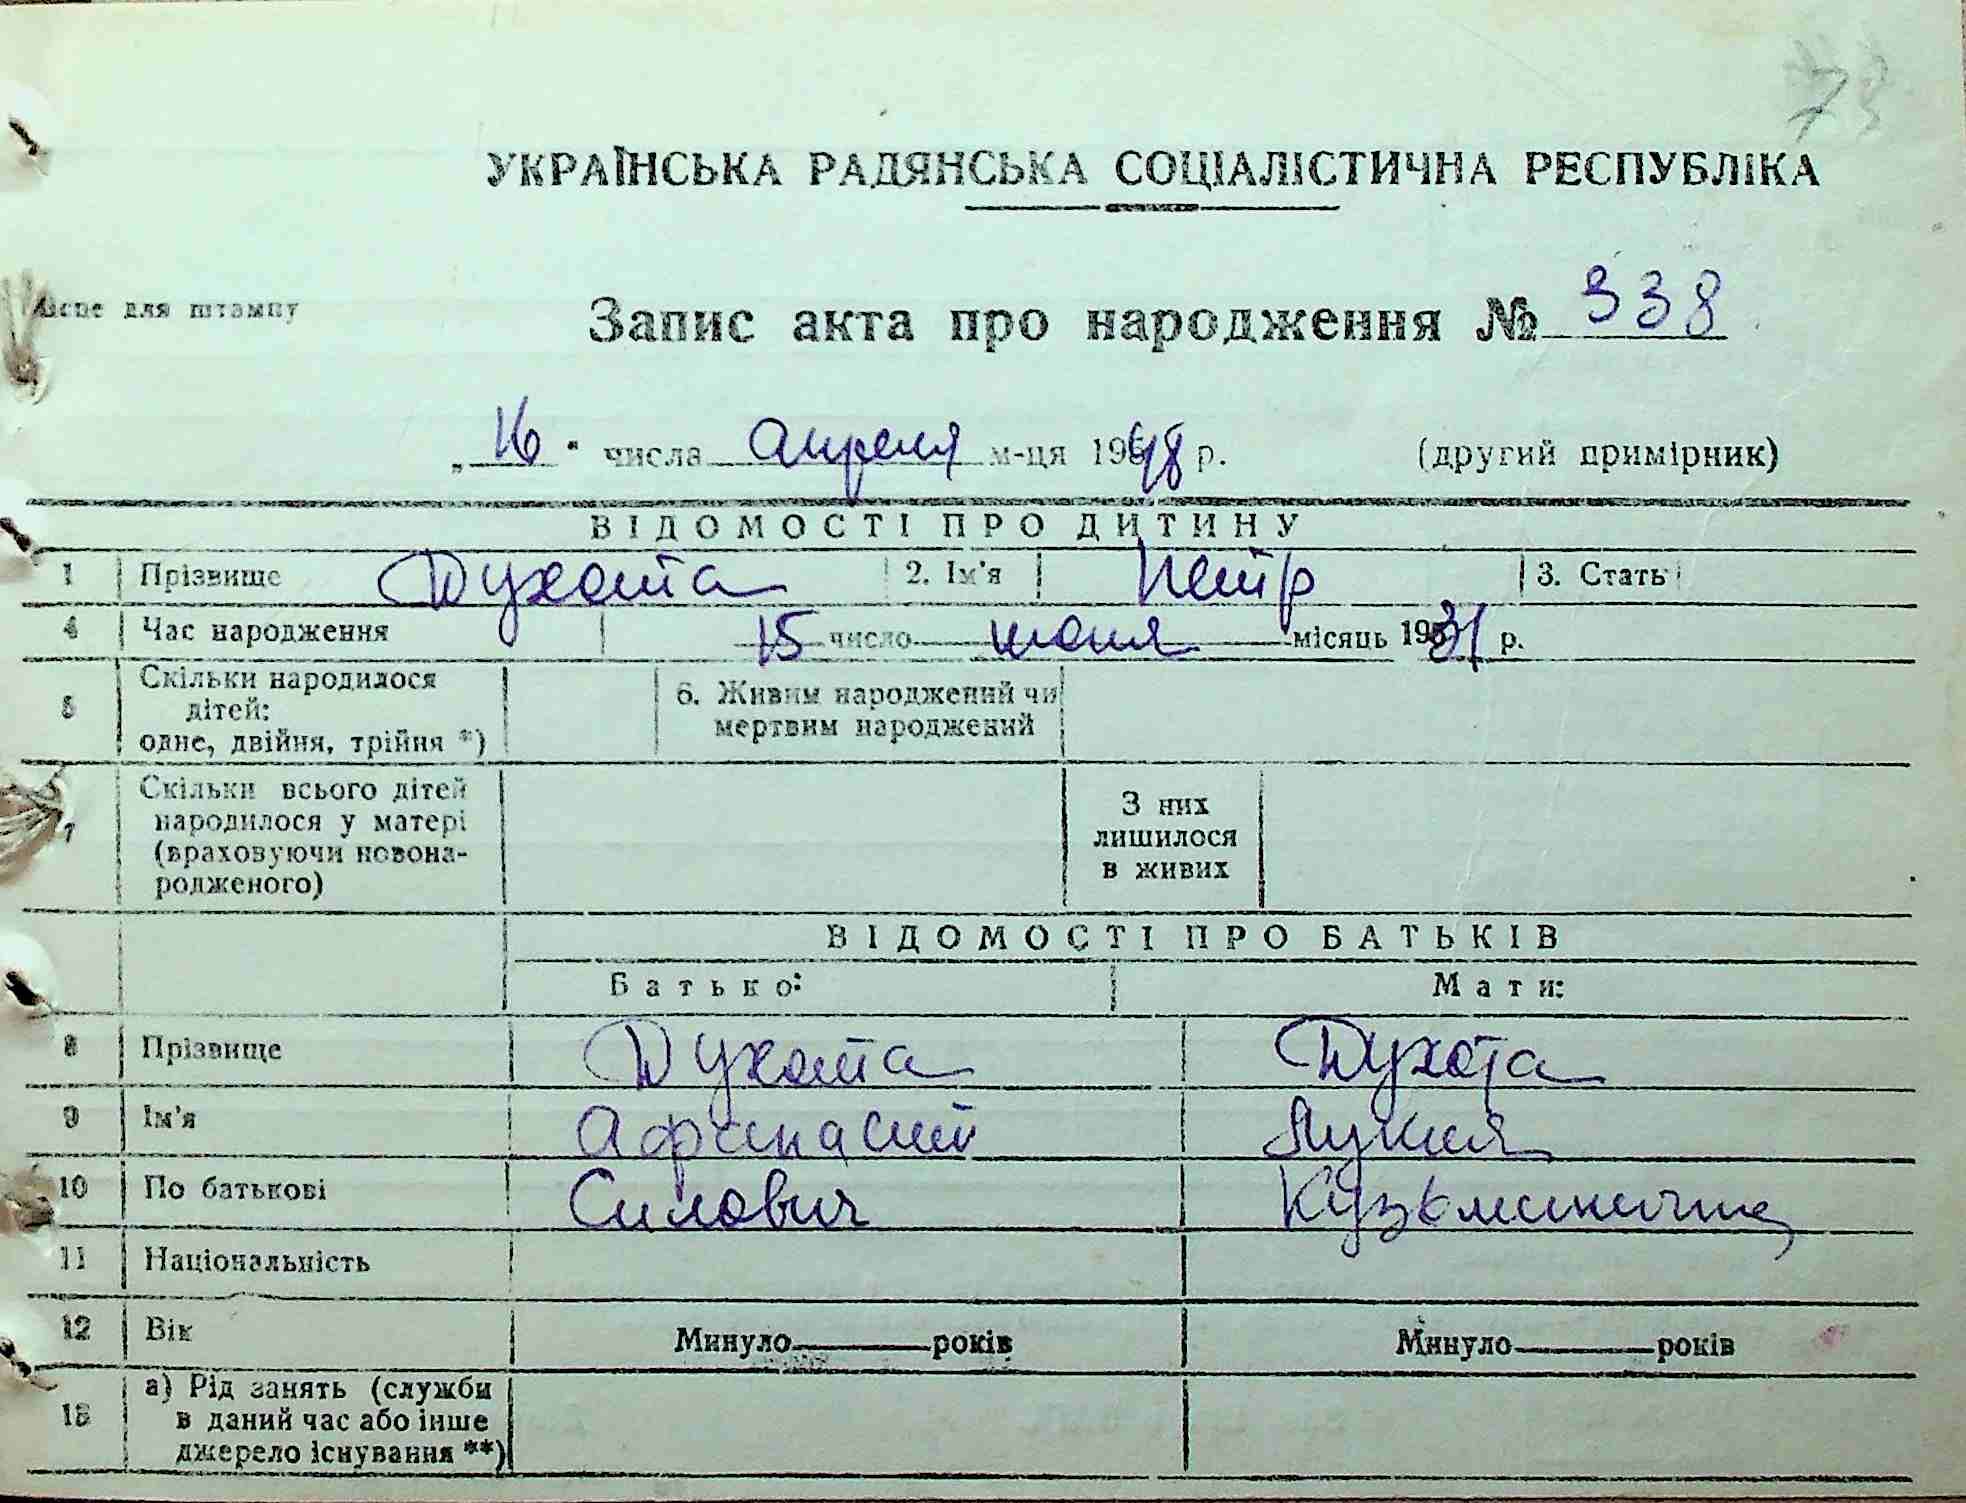 73
УКРАЇНСЬКА РАДЯНСЬКА СОЦІАЛІСТИЧНА РЕСПУБЛІКА
Місце для штампу
Запис акта про народження № 338
„16" числа апреля м-ця 1948 р. (другий примірник)
ВІДОМОСТІ ПРО ДИТИНУ
1 Прізвище Духота 2. Ім'я Петр 3. Стать
4 Час народження 15 число июня місяць 1931 р.
5 Скільки народилося дітей: одне, двійня, трійня *) 6. Живим народжений чи мертвим народжений
7 Скільки всього дітей народилося у матері (враховуючи новонародженого) З них лишилося в живих
ВІДОМОСТІ ПРО БАТЬКІВ
Батько: Мати:
8 Прізвище Духота Духота
9 Ім'я Афанасий Лукия
10 По батькові Силович Кузьминична
11 Національність
12 Вік Минуло років Минуло років
13 а) Рід занять (служби в даний час або інше джерело існування **)